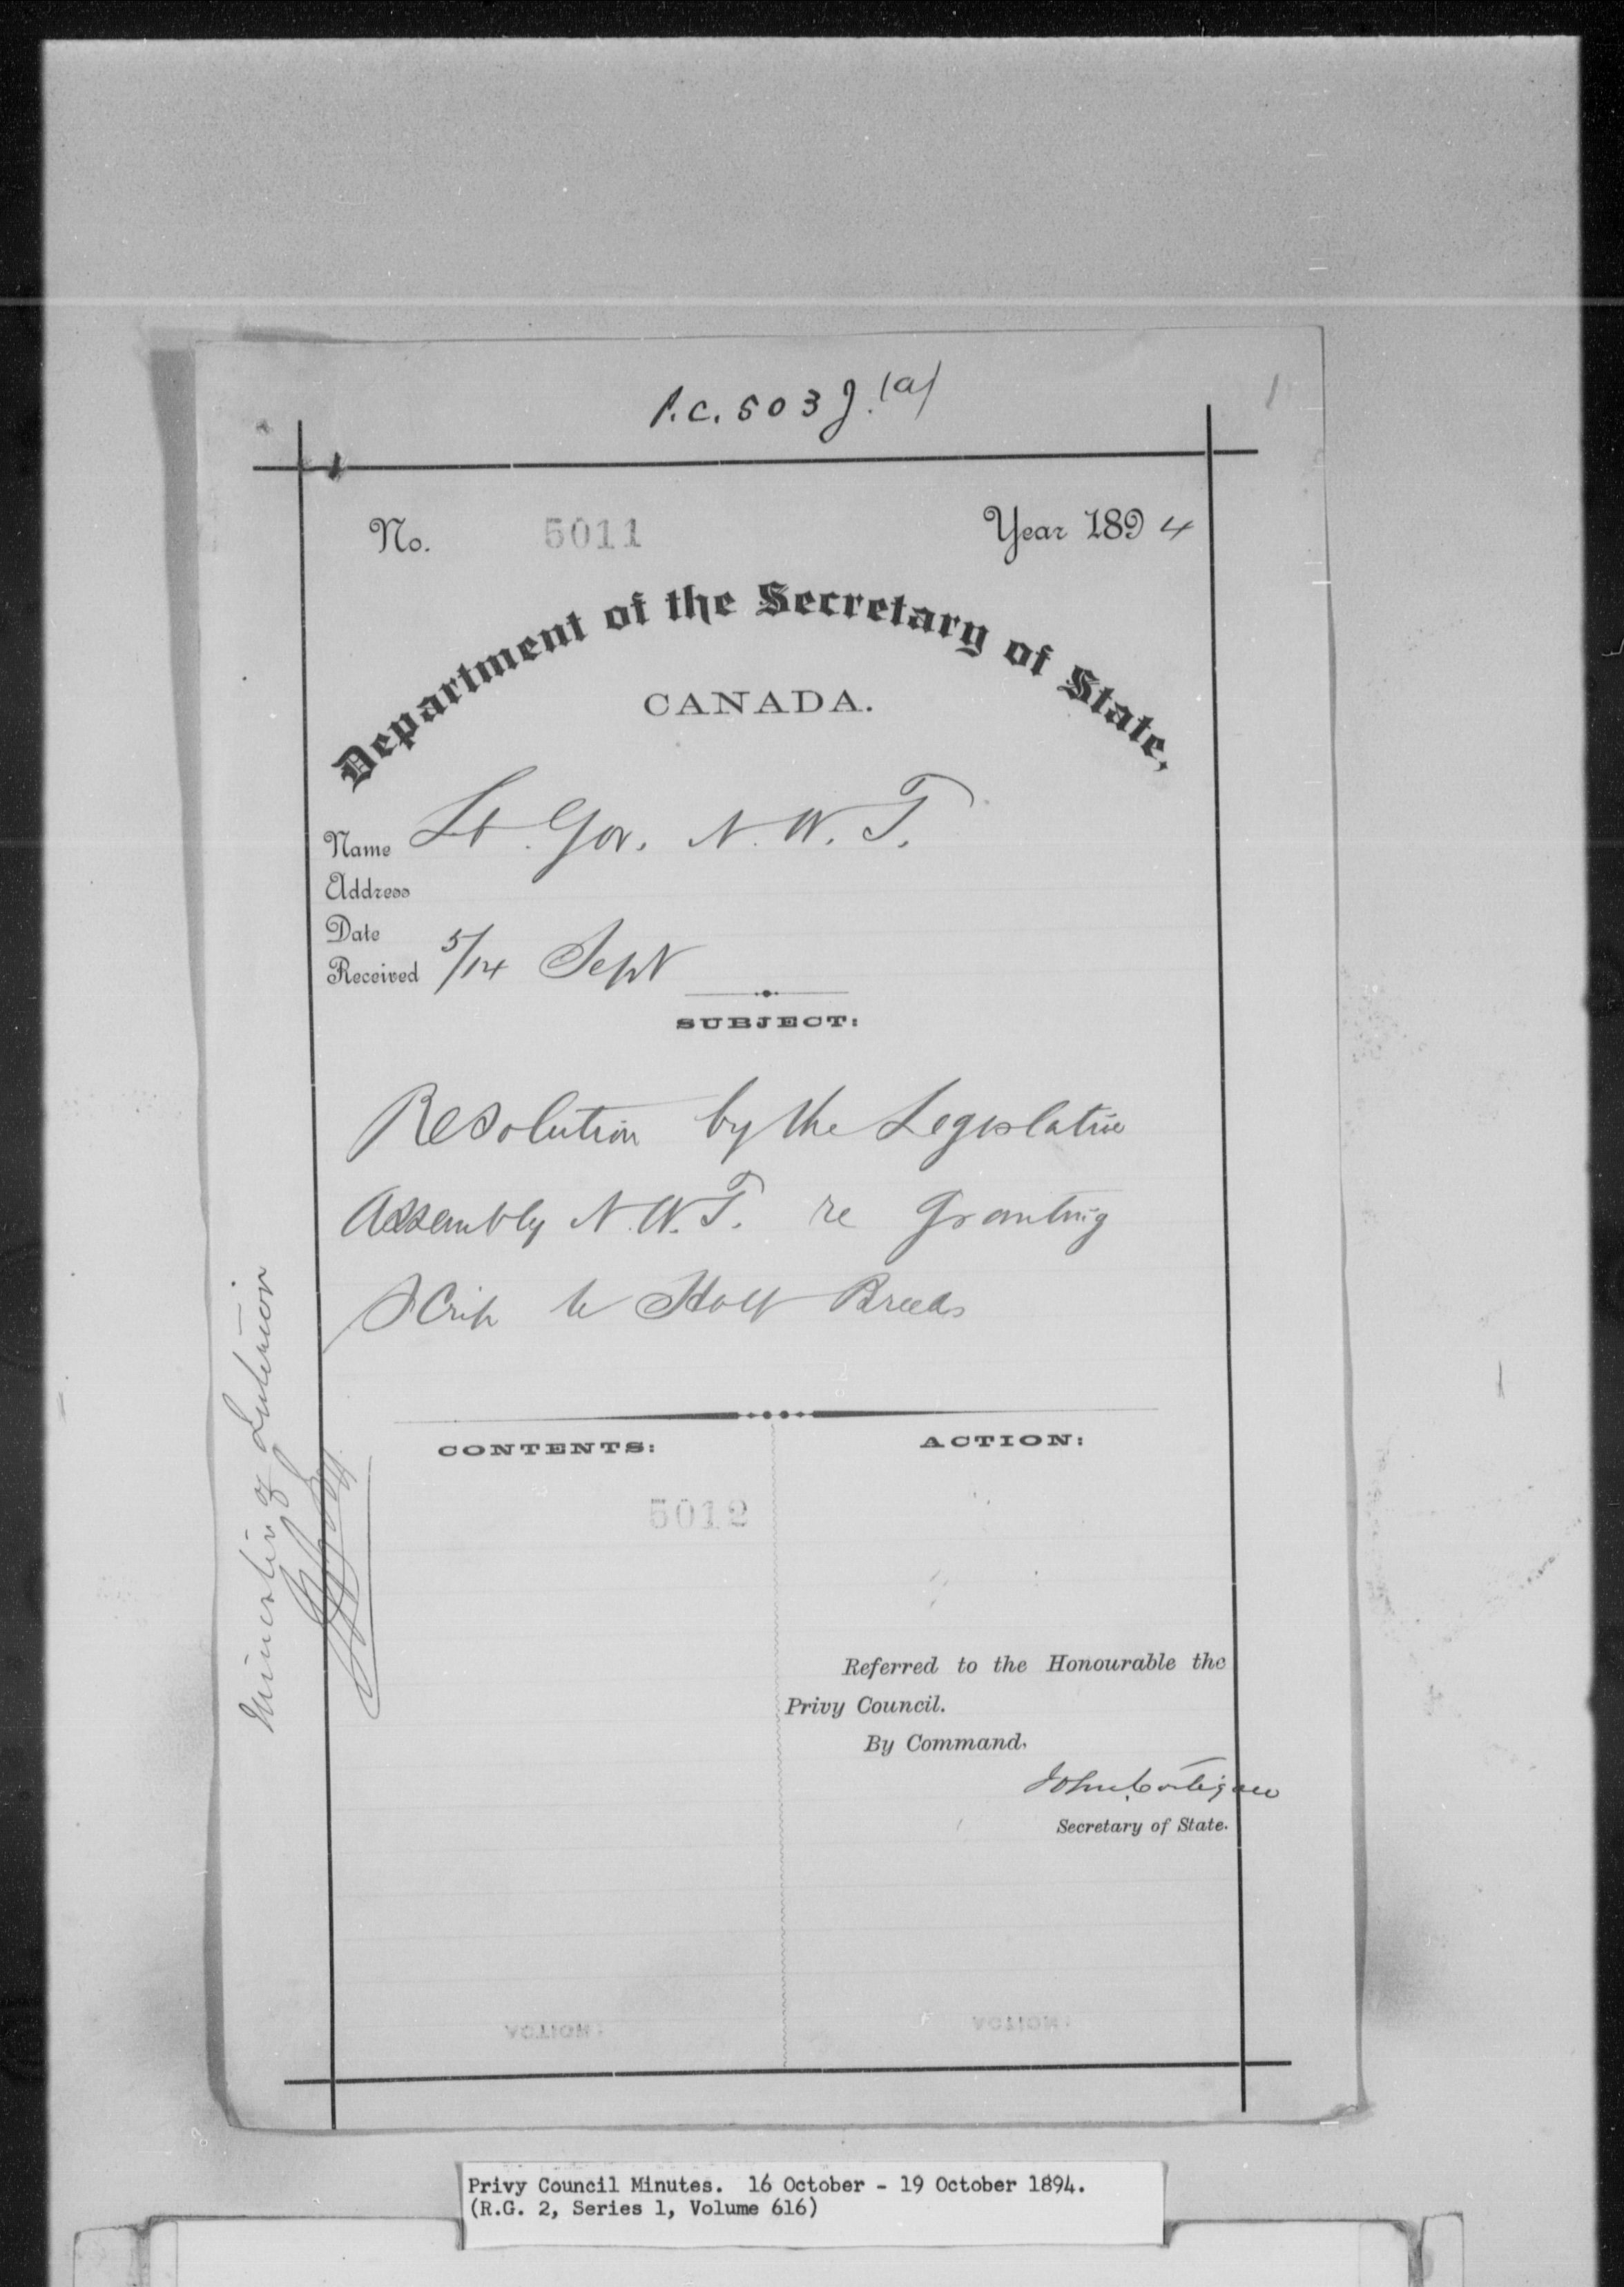 P.C. 503 J. (a)
No. 5011 Year 1894
Department of the Secretary of State,
CANADA.
Name Lt. Gov. N. W. T.
Address
Date
Received 5/14 Sept
SUBJECT:
Resolution by the Legislative
Assembly N. W. T. re Granting
Scrip to Half Breeds
Minister of Interior
CONTENTS:
5012
ACTION:
Referred to the Honourable the
Privy Council.
By Command.
John Costigan
Secretary of State.
ACTION:
ACTION:
Privy Council Minutes. 16 October - 19 October 1894.
(R.G. 2, Series 1, Volume 616)